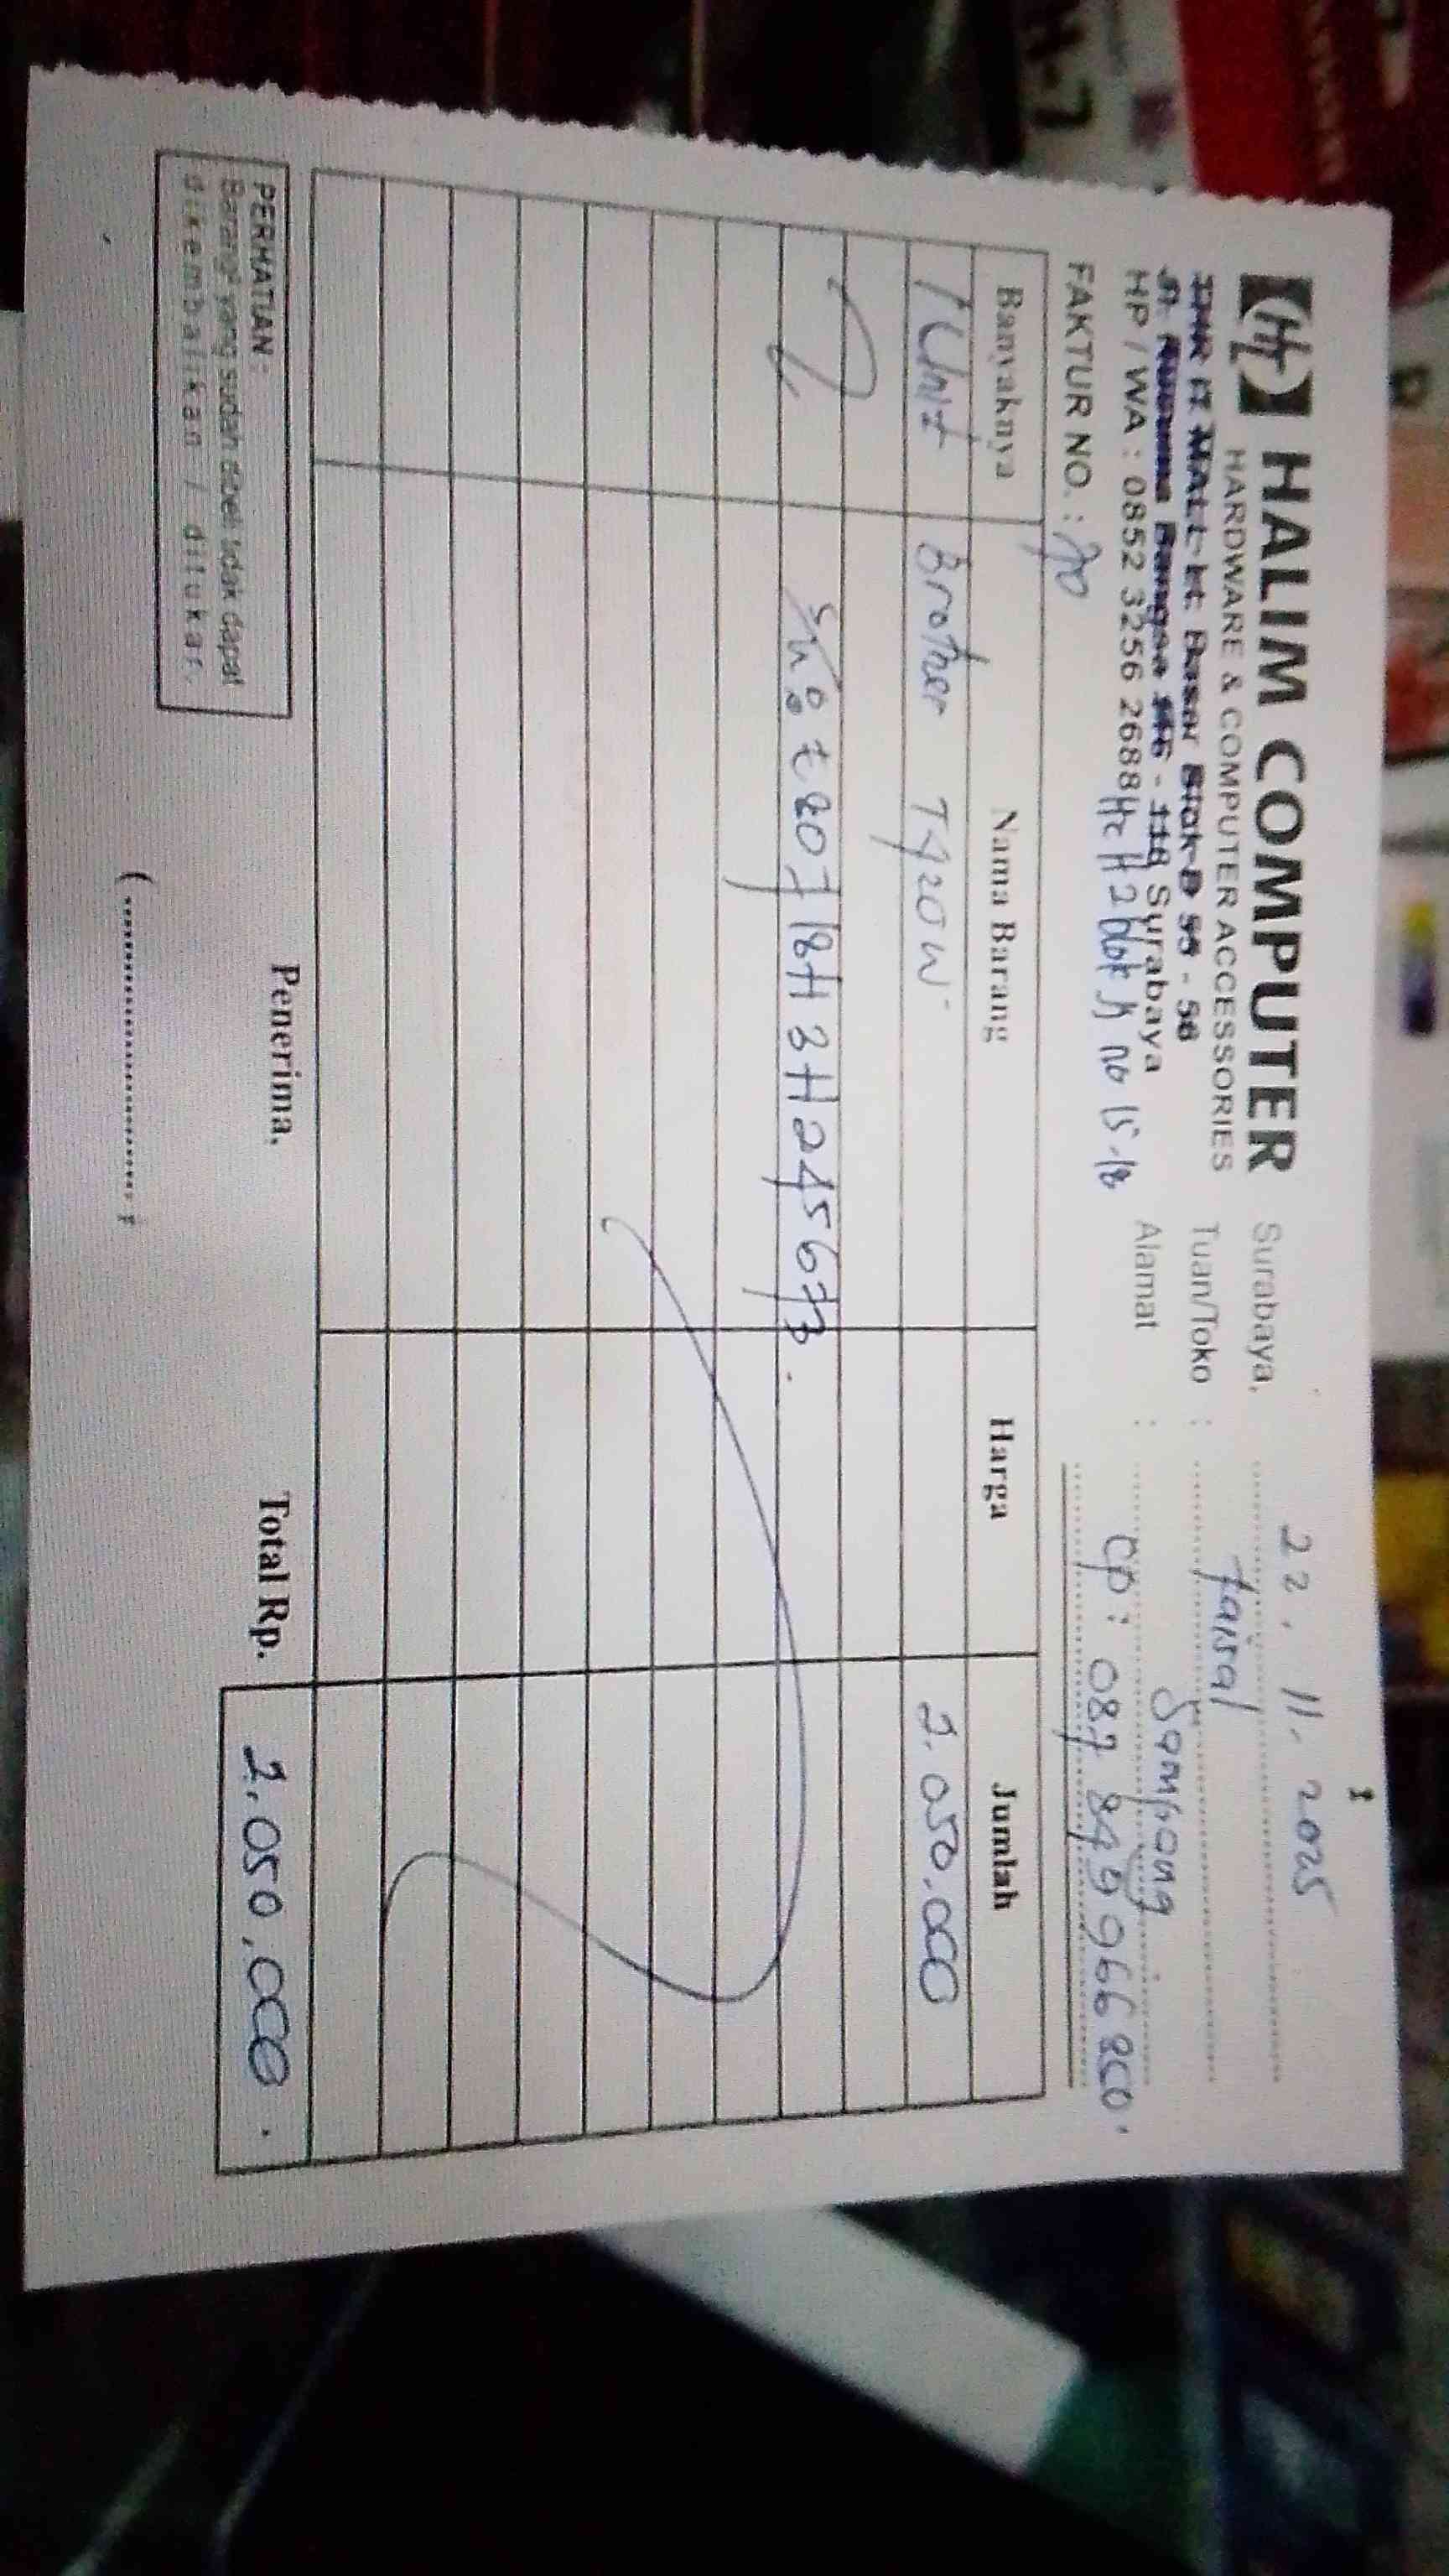 1
HALIM COMPUTER
HARDWARE & COMPUTER ACCESSORIES
THR IT MALL Lt. Dasar Blok D 55 - 56
Jl. Kusuma Bangsa 116 - 118 Surabaya
HP / WA : 0852 3256 2688 Hi H2 blok A no 15-18
FAKTUR NO. :
Surabaya, 22. 11. 2025
Tuan/Toko : Faisal
Alamat : Sampang
cp : 087 849 966 800.
Banyaknya Nama Barang Harga Jumlah
1 Unit Brother T420W 2.050.000
PERHATIAN :
Barang² yang sudah dibeli tidak dapat
dikembalikan / ditukar.
Penerima,
(....................)
Total Rp. 2.050.000.